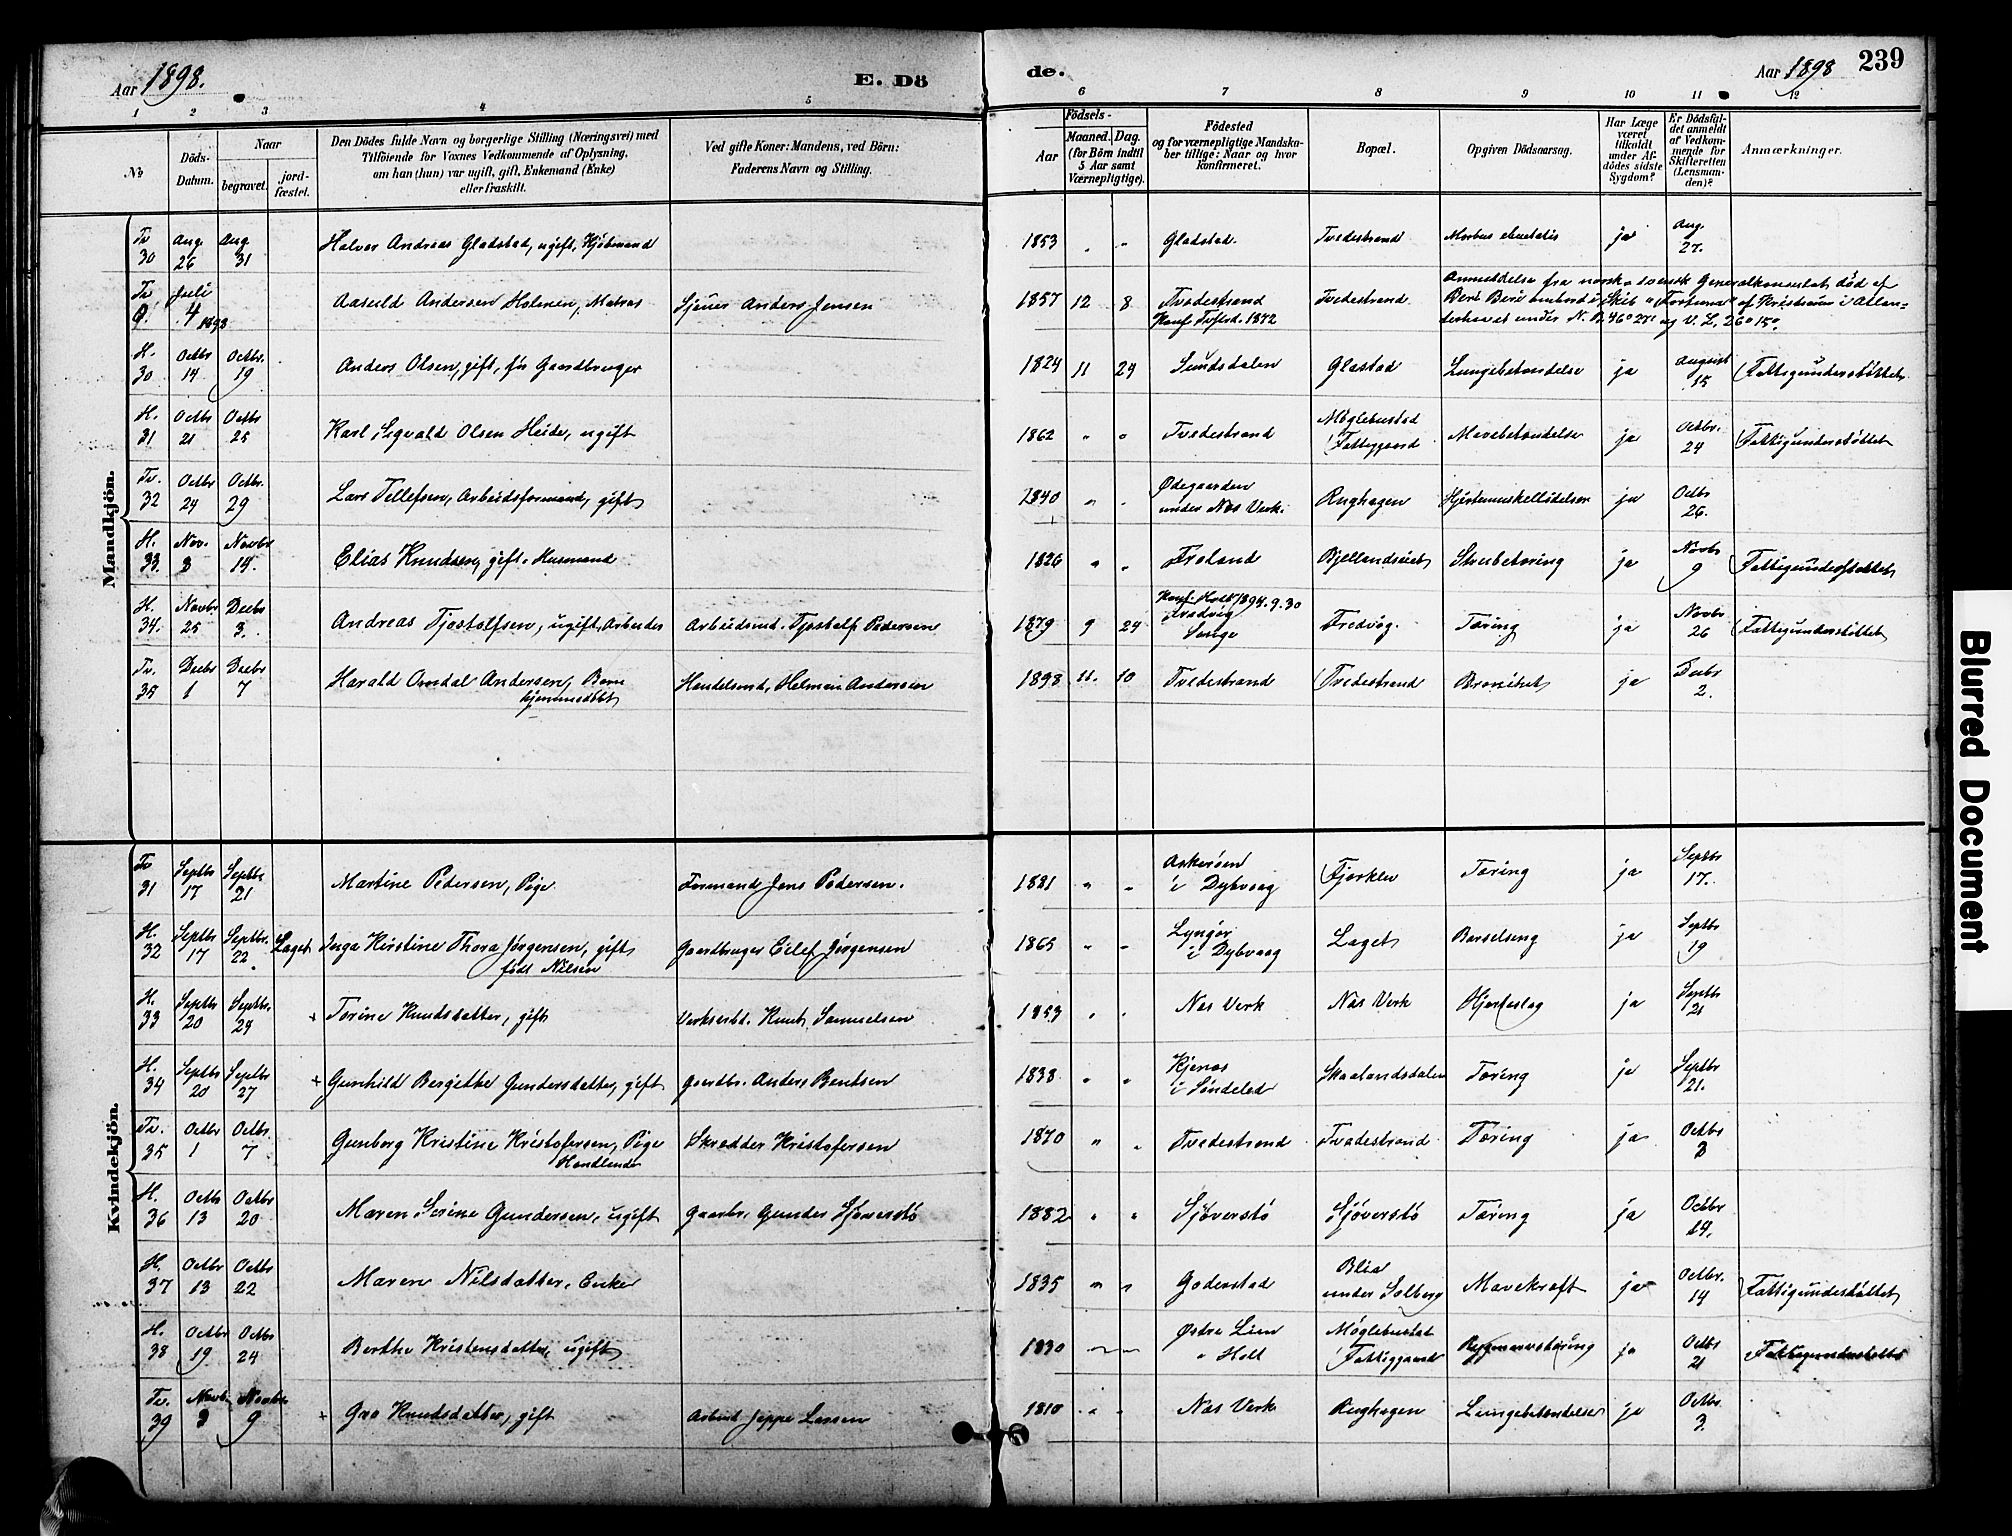 Aar 1898.
E. Dö
de.
Aar 1898
239
1 2 3 4 5 6 7 8 9 10 11 12
No
Döds-Datum.
Naar
begravet.
jord-fæstet.
Den Dödes fulde Navn og borgerlige Stilling (Næringsvei) med
Tilföiende for Voxnes Vedkommende af Oplysning,
om han (hun) var ugift, gift, Enkemand (Enke)
eller fraskilt.
Ved gifte Koner: Mandens, ved Börn:
Faderens Navn og Stilling.
Födsels-
Aar
Maaned. Dag.
(for Börn indtil
5 Aar samt
Værnepligtige).
Födested
og for værnepligtige Mandska-
ber tillige: Naar og hvor
konfirmeret.
Bopæl.
Opgiven Dödsaarsag.
Har Læge
været
tilkaldt
under Af-
dödes sidste
Sygdom?
Er Dödsfal-
det anmeldt
af Vedkom-
mende for
Skifteretten
(Lensman-
den)?
Anmærkninger.
Mandkjön.
Tv 30 Aug. 26 Aug. 31 Halvor Andreas Gladstad, ugift, Kjøbmand 1853 " " Gladstad. Tvedestrand ja Aug. 27.
Tv Juli 4 1893 Aasuld Andersen Holmen, Matros Sjouer Anders Jensen 1857 12 8 Tvedestrand Konf. Tvestrd. 1872 Tvedestrand
Anmeldelse fra norsk-svensk Generalkonsulat, død af
Beri Beri ombord i Skib "Fortuna" af Kristiania i Atlan-
terhavet under N. B. 46° 27' og V. L. 26° 15'.
H. 30 Octbr 14 Octbr. 19 Anders Olsen, gift, før Gaardbruger 1824 11 24 Sundsdalen Glastad Lungebetændelse ja August 15 Fattigunderstøttet
H. 31 Octbr 21 Octbr 25 Karl Sigvald Olsen Heide, ugift 1862 " " Tvedestrand Møglebustad Fattiggaard Mavebetændelse ja Octbr. 24 Fattigunderstøttet
Tv. 32 Octbr 24 Octbr. 29 Lars Tellefsen, Arbeidsformand, gift 1840 " " Ødegaarden under Næs Verk. Rughagen Hjertemuskellidelse ja Octbr 26.
H. 33. Nov. 8 Novbr 14. Elias Knudsen, gift, Husmand 1826 " " Froland Bjellandseiet Strubetæring ja Novbr 9 Fattigunderstøttet
H. 34. Novbr 25 Decbr 3. Andreas Tjostolfsen, ugift, Arbeider Arbeidsmd. Tjostolf Pedersen 1879 9 24 Konf. Holt 1894.9.30 Fredvig Songe Fredvig. Tæring ja Novbr 26 Fattigunderstøttet
Tv. 35 Decbr 1 Decbr 7 Harald Omdal Andersen, Barn hjemmedøbt Handelsmd. Helman Andersen 1898 11. 10 Tvedestrand Tvedestrand Bronchit ja Decbr 2.
Kvindekjön.
Tv 31 Septbr 17 Septbr 21 Martine Pedersen, Pige Formand Jens Pedersen. 1881 " " Askerøen i Dybvaag Fjærkleo Tæring ja Septbr 17.
H. 32 Septbr 17 Septbr. 22. Laget Inga Kirstine Thora Jørgensen, gift født Nilsen Gaardbruger Eilef Jørgensen 1865 " " Lyngør i Dybvaag Laget Barselseng ja Septbr 19
H. 33 Septbr 20 Septbr. 24 + Torine Knudsdatter, gift Verksarbd. Knut Samuelsen 1853 " " Næs Verk Næs Verk Hjerteslag ja Septbr 21
H. 34 Septbr 20 Septbr 27 + Gunhild Bergitte Gundersdatter, gift Gaardbr. Anders Bentsen 1833 " " Kjenas i Søndeled Skaalandsdalen Tæring ja Septbr 21.
Tv. 35 Octbr 1 Octbr. 7 Gunborg Kristine Kristofersen, Pige Handlende Skrædder Kristofersen 1870 " " Tvedestrand Tvedestrand Tæring ja Octbr 3
H. 36 Octbr 13 Octbr 20 Maren Serine Gundersen, ugift Gaardbr. Gunder Sjøverstø 1882 " " Sjøverstø Sjøverstø Tæring ja Octbr 14.
H. 37 Octbr 13 Octbr 22 Maren Nilsdatter, Enke 1835 " " Goderstad Blia under Solberg Mavekræft ja Octbr. 14 Fattigunderstøttet
H. 38 Octbr 19 Octbr 24 Berthe Kristensdatter, ugift 1830 Østre Lien " Holt Møglebustad Fattiggaard Rygmarvstæring ja Octbr 21 Fattigunderstøttet
Tv. 39 Novbr. 3 Novbr 9 + Gro Knudsdatter, gift Arbeid Jeppe Larsen 1810 " " Næs Verk Rughagen Lungebetændelse ja Octbr. 3.
Blurred Document